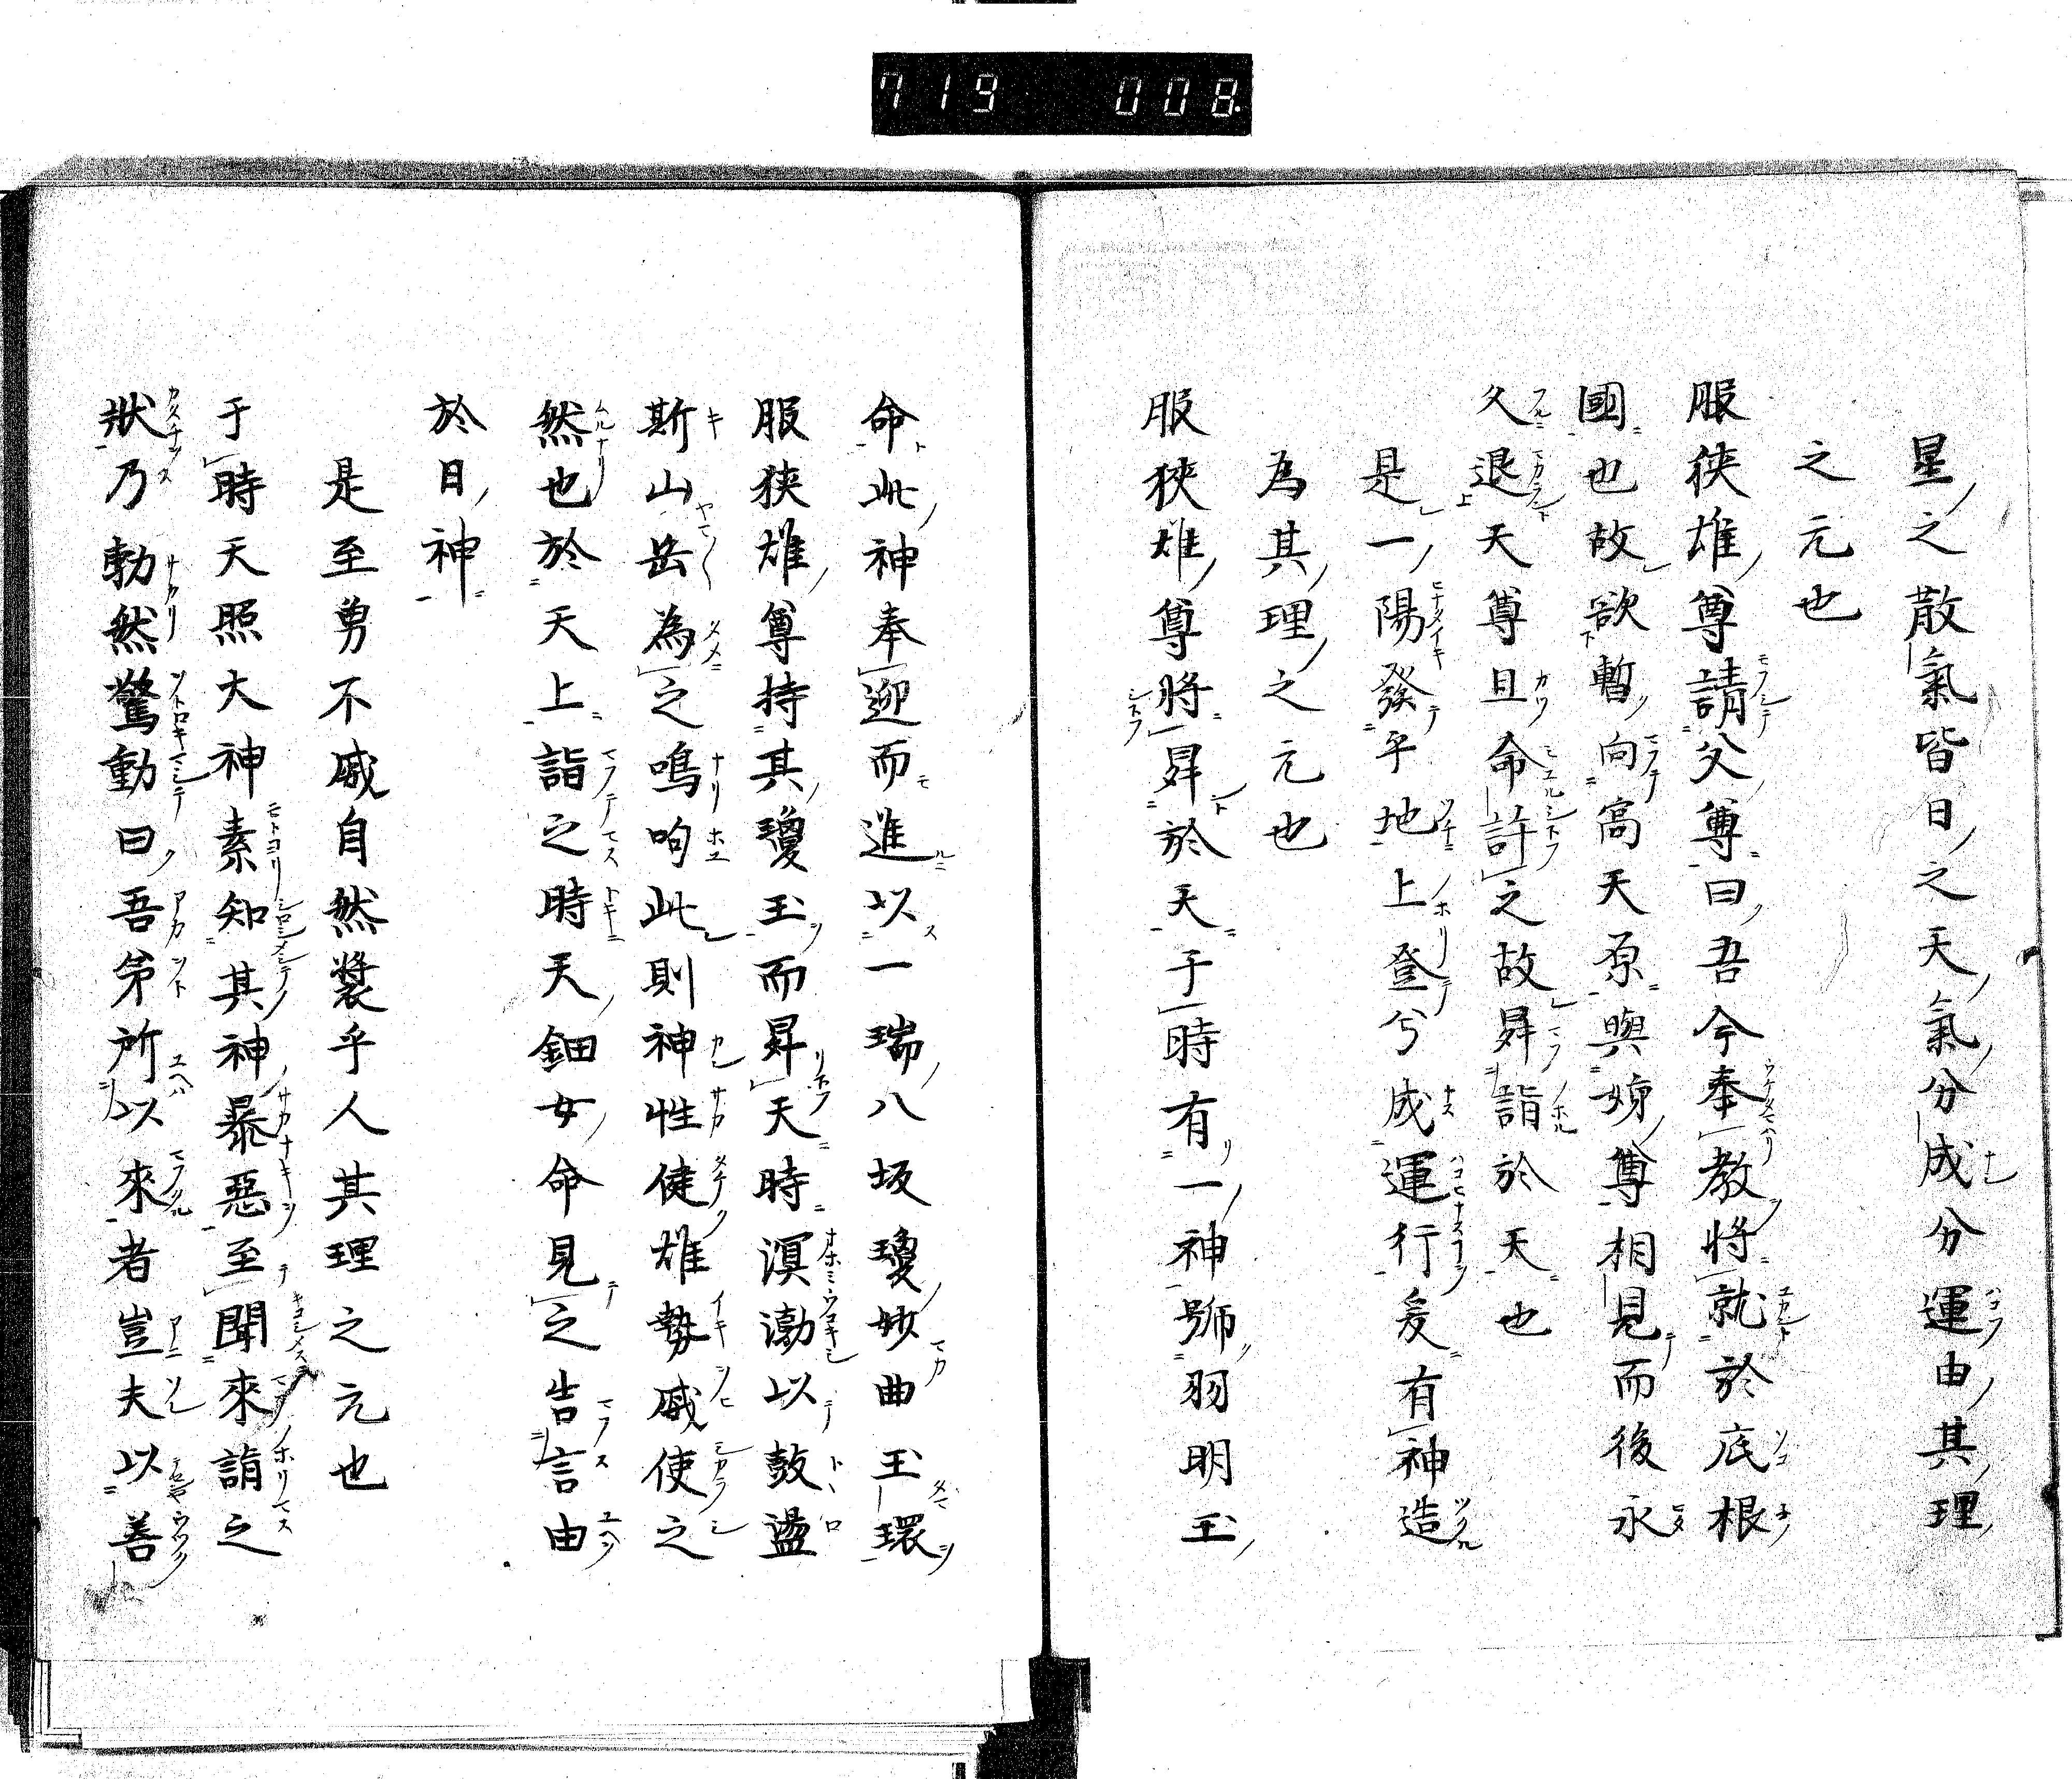 719 008
星之散氣皆日之天氣分成分運由其理
之元也
服狹雄尊請父尊曰吾今奉教將就於底根
國也故欲暫向高天原與姉尊相見而後永
久退天尊且命許之故昇詣於天也
是一陽發乎地上登兮成運行爰有神造
為其理之元也
服狹雄尊將昇於天于時有一神號羽明玉
命此神奉迎而進以一瑞八坂瓊妙曲玉環
服狹雄尊持其瓊玉而昇天時溟渤以鼓盪
斯山岳為之鳴呴此則神性健雄勢威使之
然也於天上詣之時天鈿女命見之告言由
於日神
是至勇不威自然襲乎人其理之元也
于時天照大神素知其神暴惡至聞來詣之
狀乃勃然驚動曰吾弟所以來者豈夫以善